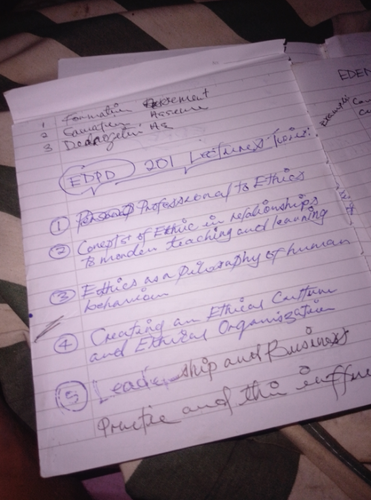 1 Formative Assessment
2
3
EDPD 201 Lectures Topics
① Professional to Ethics
② Concepts of Ethic in relationships
to morden teaching and learning
③ Ethics as a Pilosophy of human
behaviour
④ Creating an Ethical Culture
and Ethical Organization
⑤ Leadership and Business
Practice and
EDEM